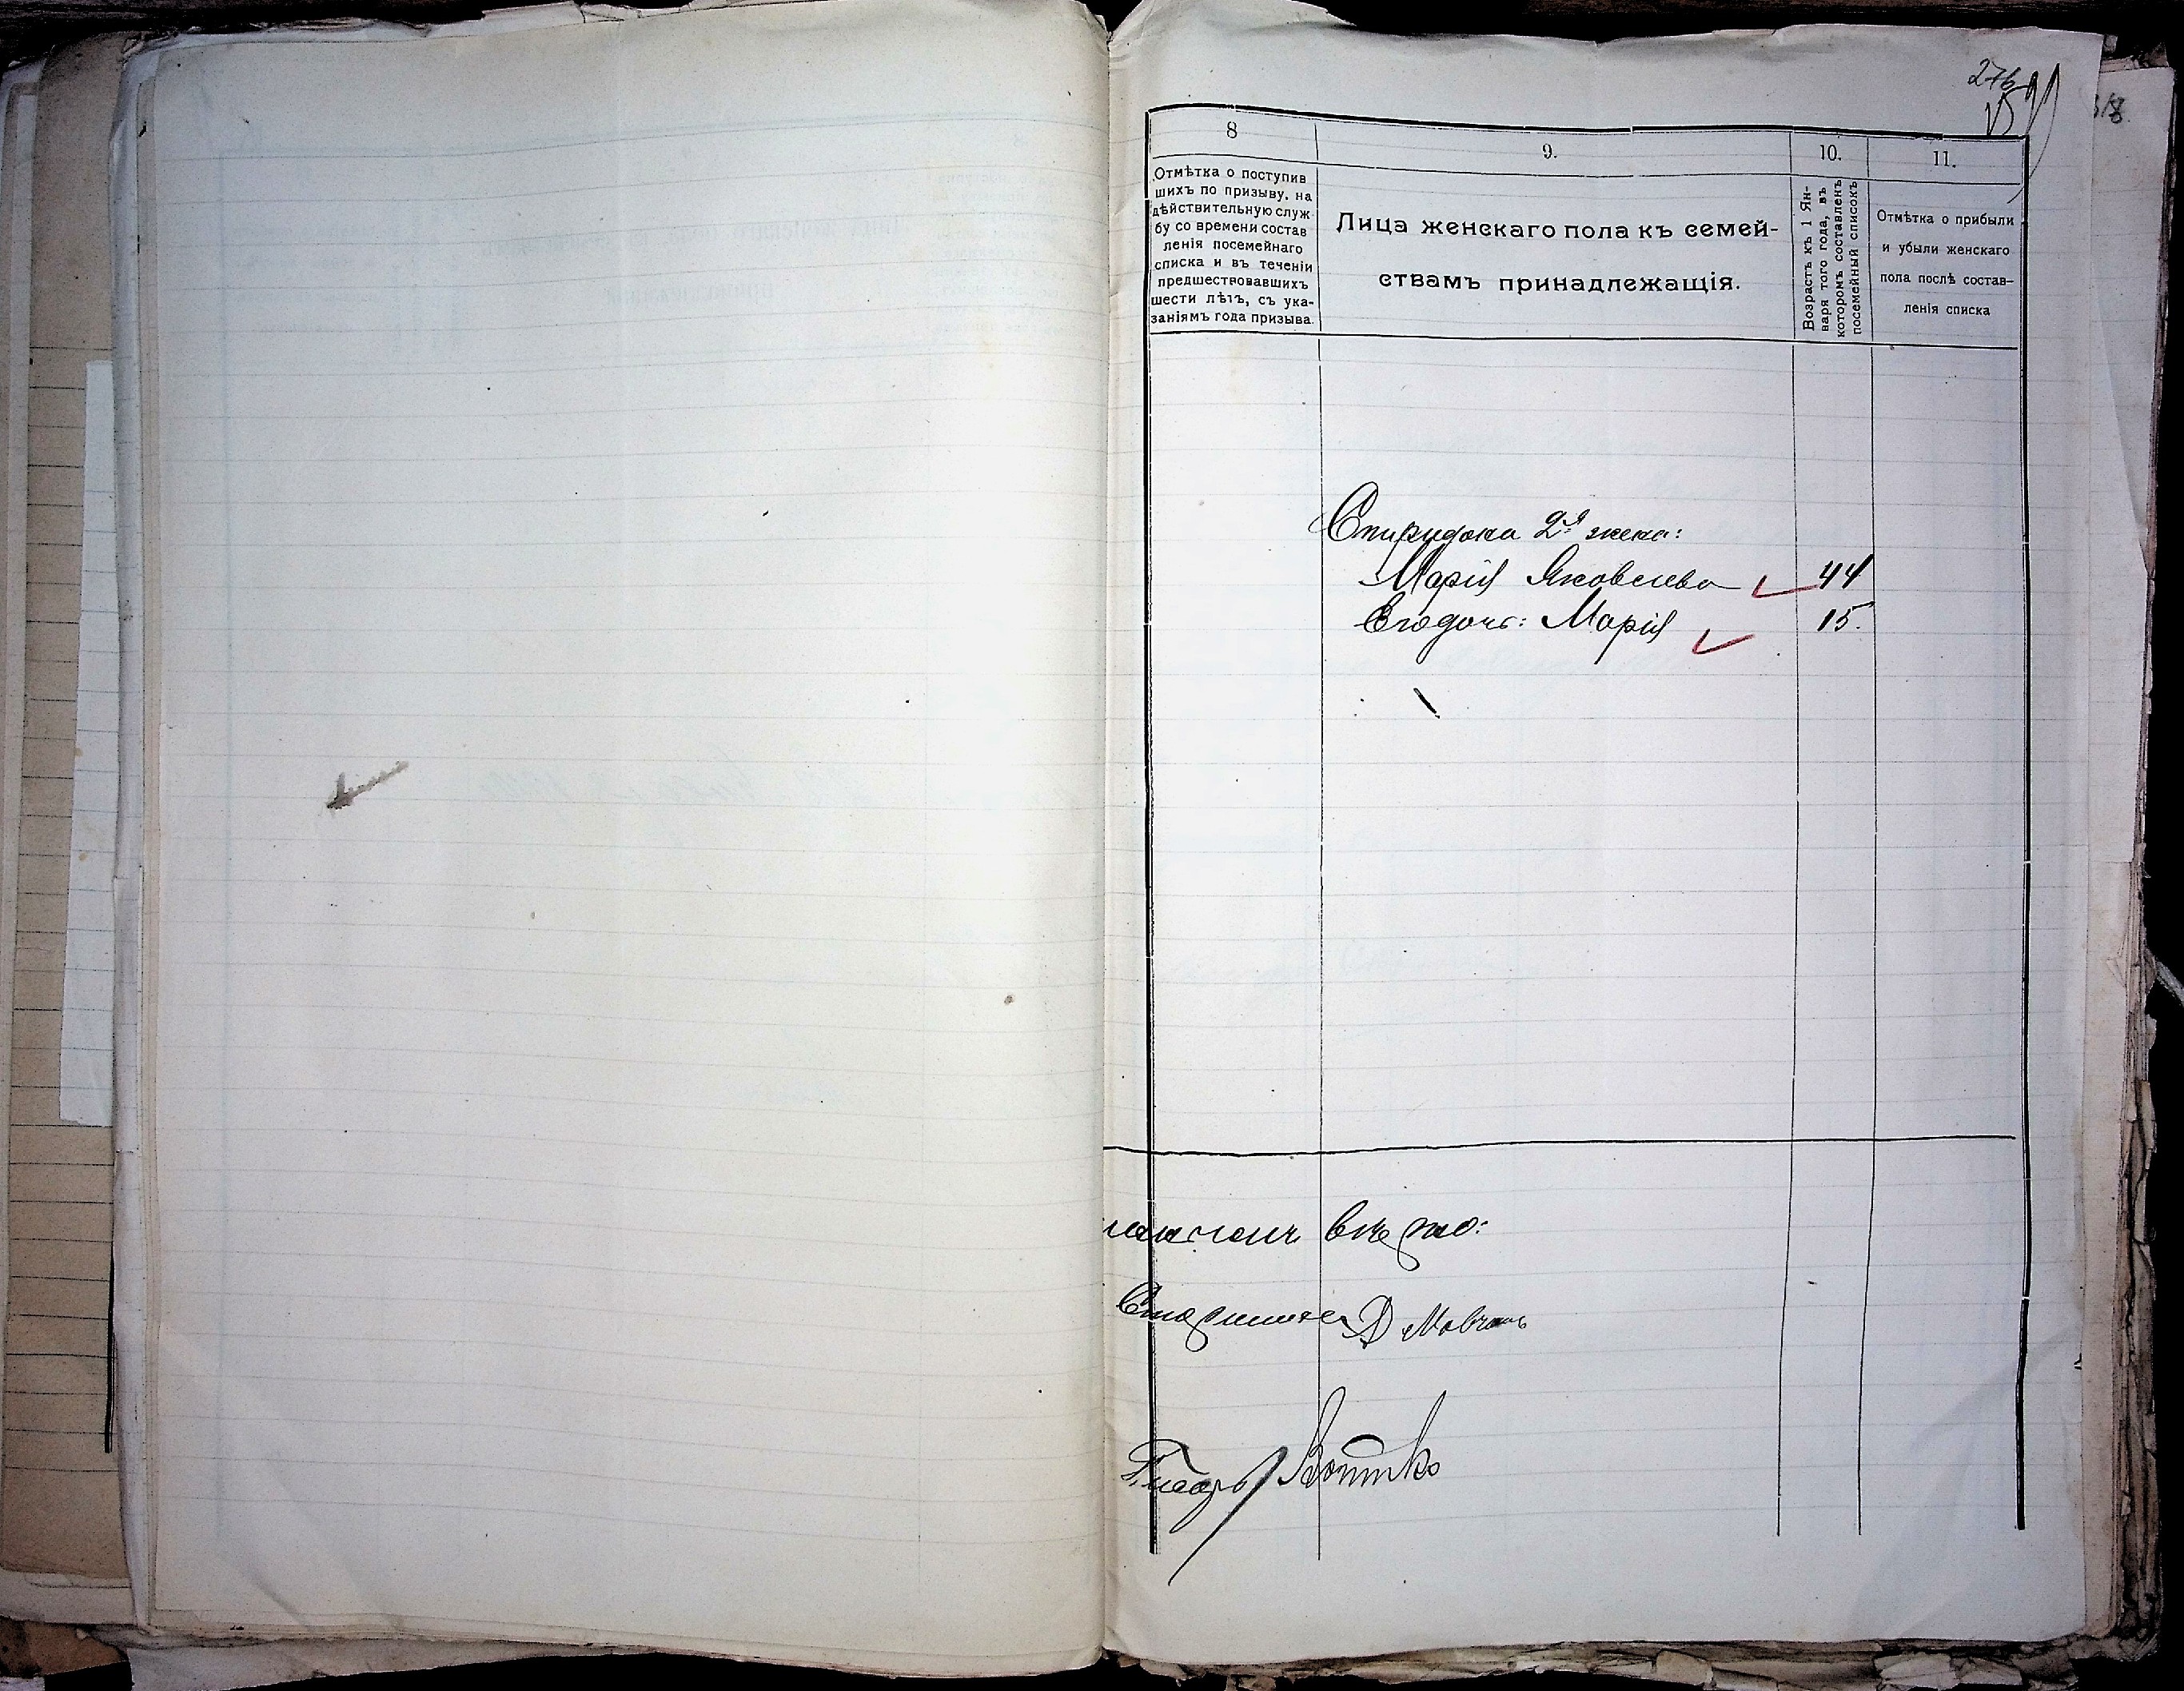 276
318
8
9.
10.
11.
Отмѣтка о поступив
шихъ по призыву, на
дѣйствительную служ-
бу со времени состав
ленія посемейнаго
списка и въ теченіи
предшествовавшихъ
шести лѣтъ, съ ука-
заніямъ года призыва.
Лица женскаго пола къ семей-
ствамъ принадлежащія.
Возрастъ къ 1 Ян-
варя того года, въ
которомъ составленъ
посемейный списокъ
Отмѣтка о прибыли
и убыли женскаго
пола послѣ состав-
ленія списка
Спиридона 2я жена:
Марія Яковлева 44
Его дочь: Марія 15.
вѣрно:
Старшина Д Мовчанъ
Писарь